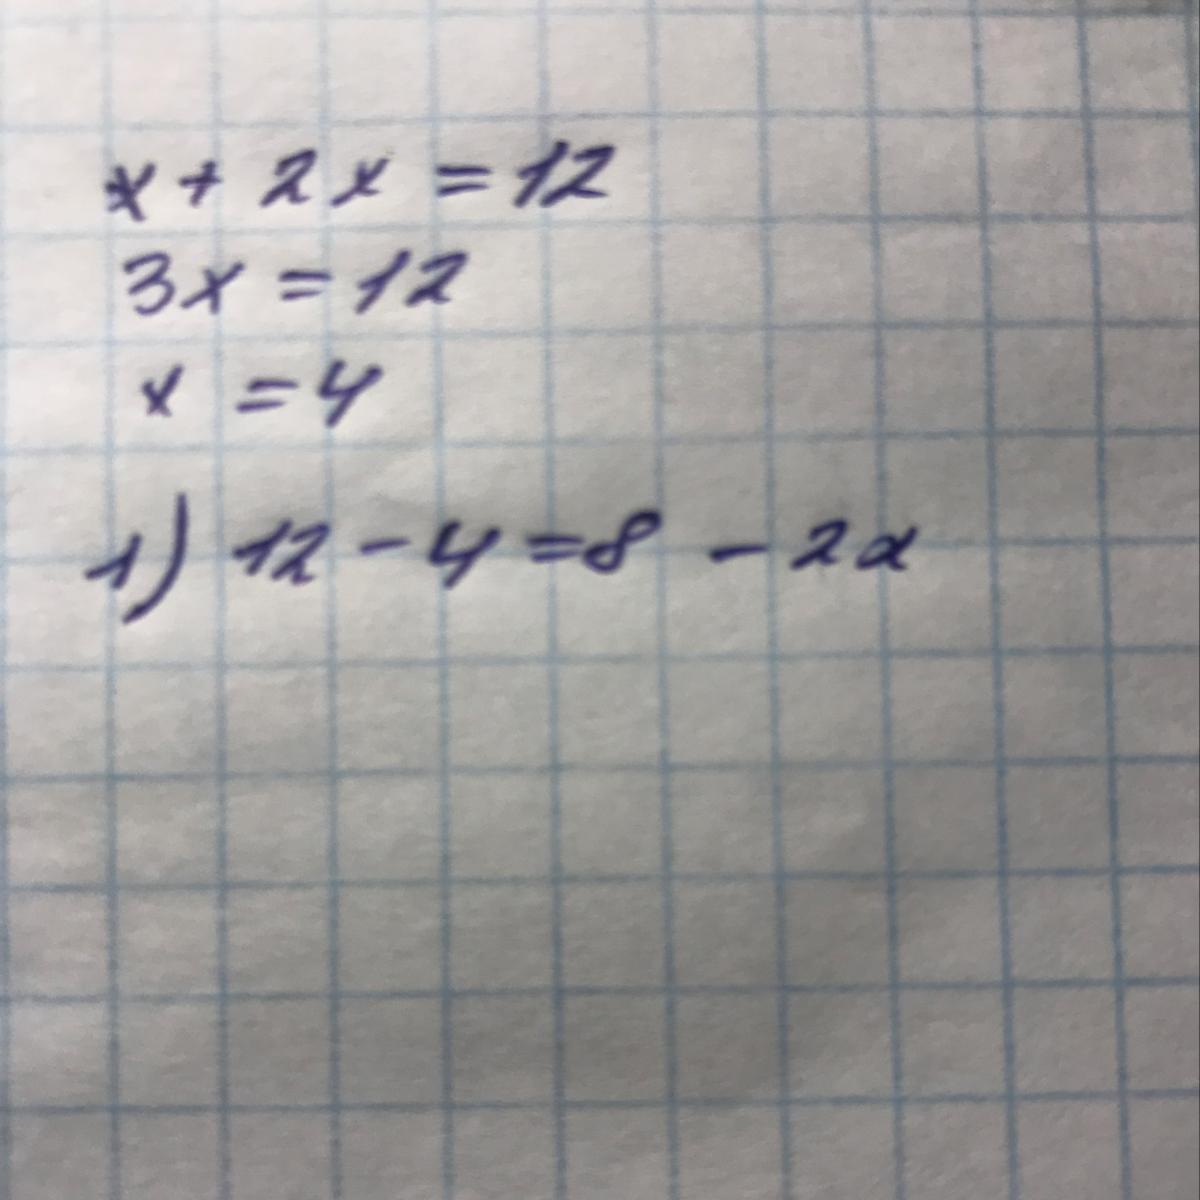 x + 2x = 12
3x = 12
x = 4
1) 12 - 4 = 8 - 2x